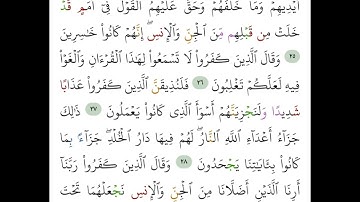 أَيْدِيهِمْ وَمَا خَلْفَهُمْ وَحَقَّ عَلَيْهِمُ ٱلْقَوْلُ فِىٓ أُمَمٍ قَدْ
خَلَتْ مِن قَبْلِهِم مِّنَ ٱلْجِنِّ وَٱلْإِنسِ ۖ إِنَّهُمْ كَانُوا۟ خَـٰسِرِينَ
٢٥ وَقَالَ ٱلَّذِينَ كَفَرُوا۟ لَا تَسْمَعُوا۟ لِهَـٰذَا ٱلْقُرْءَانِ وَٱلْغَوْا۟
فِيهِ لَعَلَّكُمْ تَغْلِبُونَ ٢٦ فَلَنُذِيقَنَّ ٱلَّذِينَ كَفَرُوا۟ عَذَابًا
شَدِيدًا وَلَنَجْزِيَنَّهُمْ أَسْوَأَ ٱلَّذِى كَانُوا۟ يَعْمَلُونَ ٢٧ ذَٰلِكَ
جَزَآءُ أَعْدَآءِ ٱللَّهِ ٱلنَّارُ ۖ لَهُمْ فِيهَا دَارُ ٱلْخُلْدِ ۖ جَزَآءًۢ بِمَا
كَانُوا۟ بِـَٔايَـٰتِنَا يَجْحَدُونَ ٢٨ وَقَالَ ٱلَّذِينَ كَفَرُوا۟ رَبَّنَآ
أَرِنَا ٱلَّذَيْنِ أَضَلَّانَا مِنَ ٱلْجِنِّ وَٱلْإِنسِ نَجْعَلْهُمَا تَحْتَ